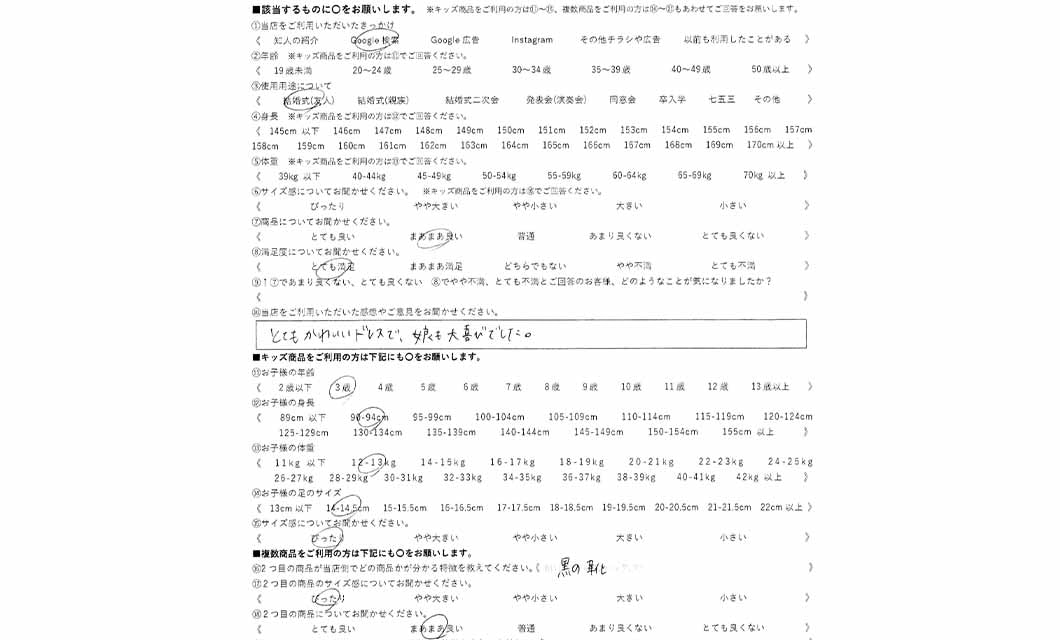 ■該当するものに〇をお願いします。 ※キッズ商品をご利用の方は⑪～⑮、複数商品をご利用の方は⑯～㉑もあわせてご回答をお願いします。
①当店をご利用いただいたきっかけ
《 知人の紹介 Google 検索 Google 広告 Instagram その他チラシや広告 以前も利用したことがある 》
②年齢 ※キッズ商品をご利用の方は⑪でご回答ください。
《 19歳未満 20～24歳 25～29歳 30～34歳 35～39歳 40～49歳 50歳以上 》
③使用用途について
《 結婚式(友人) 結婚式(親族) 結婚式二次会 発表会(演奏会) 同窓会 卒入学 七五三 その他 》
④身長 ※キッズ商品をご利用の方は⑫でご回答ください。
《 145cm 以下 146cm 147cm 148cm 149cm 150cm 151cm 152cm 153cm 154cm 155cm 156cm 157cm
158cm 159cm 160cm 161cm 162cm 163cm 164cm 165cm 166cm 167cm 168cm 169cm 170cm 以上 》
⑤体重 ※キッズ商品をご利用の方は⑬でご回答ください。
《 39kg 以下 40-44kg 45-49kg 50-54kg 55-59kg 60-64kg 65-69kg 70kg 以上 》
⑥サイズ感についてお聞かせください。 ※キッズ商品をご利用の方は⑮でご回答ください。
《 ぴったり やや大きい やや小さい 大きい 小さい 》
⑦商品についてお聞かせください。
《 とても良い まあまあ良い 普通 あまり良くない とても良くない 》
⑧満足度についてお聞かせください。
《 とても満足 まあまあ満足 どちらでもない やや不満 とても不満 》
⑨↑⑦であまり良くない、とても良くない ⑧でやや不満、とても不満とご回答のお客様、どのようなことが気になりましたか？
《 》
⑩当店をご利用いただいた感想やご意見をお聞かせください。
とてもかわいいドレスで、娘も大喜びでした。
■キッズ商品をご利用の方は下記にも〇をお願いします。
⑪お子様の年齢
《 2歳以下 3歳 4歳 5歳 6歳 7歳 8歳 9歳 10歳 11歳 12歳 13歳以上 》
⑫お子様の身長
《 89cm 以下 90-94cm 95-99cm 100-104cm 105-109cm 110-114cm 115-119cm 120-124cm
125-129cm 130-134cm 135-139cm 140-144cm 145-149cm 150-154cm 155cm 以上 》
⑬お子様の体重
《 11kg 以下 12-13kg 14-15kg 16-17kg 18-19kg 20-21kg 22-23kg 24-25kg
26-27kg 28-29kg 30-31kg 32-33kg 34-35kg 36-37kg 38-39kg 40-41kg 42kg 以上 》
⑭お子様の足のサイズ
《 13cm 以下 14-14.5cm 15-15.5cm 16-16.5cm 17-17.5cm 18-18.5cm 19-19.5cm 20-20.5cm 21-21.5cm 22cm 以上 》
⑮サイズ感についてお聞かせください。
《 ぴったり やや大きい やや小さい 大きい 小さい 》
■複数商品をご利用の方は下記にも〇をお願いします。
⑯2つ目の商品が当店側でどの商品かが分かる特徴を教えてください。《 黒の靴 》
⑰2つ目の商品のサイズ感についてお聞かせください。
《 ぴったり やや大きい やや小さい 大きい 小さい 》
⑱2つ目の商品についてお聞かせください。
《 とても良い まあまあ良い 普通 あまり良くない とても良くない 》